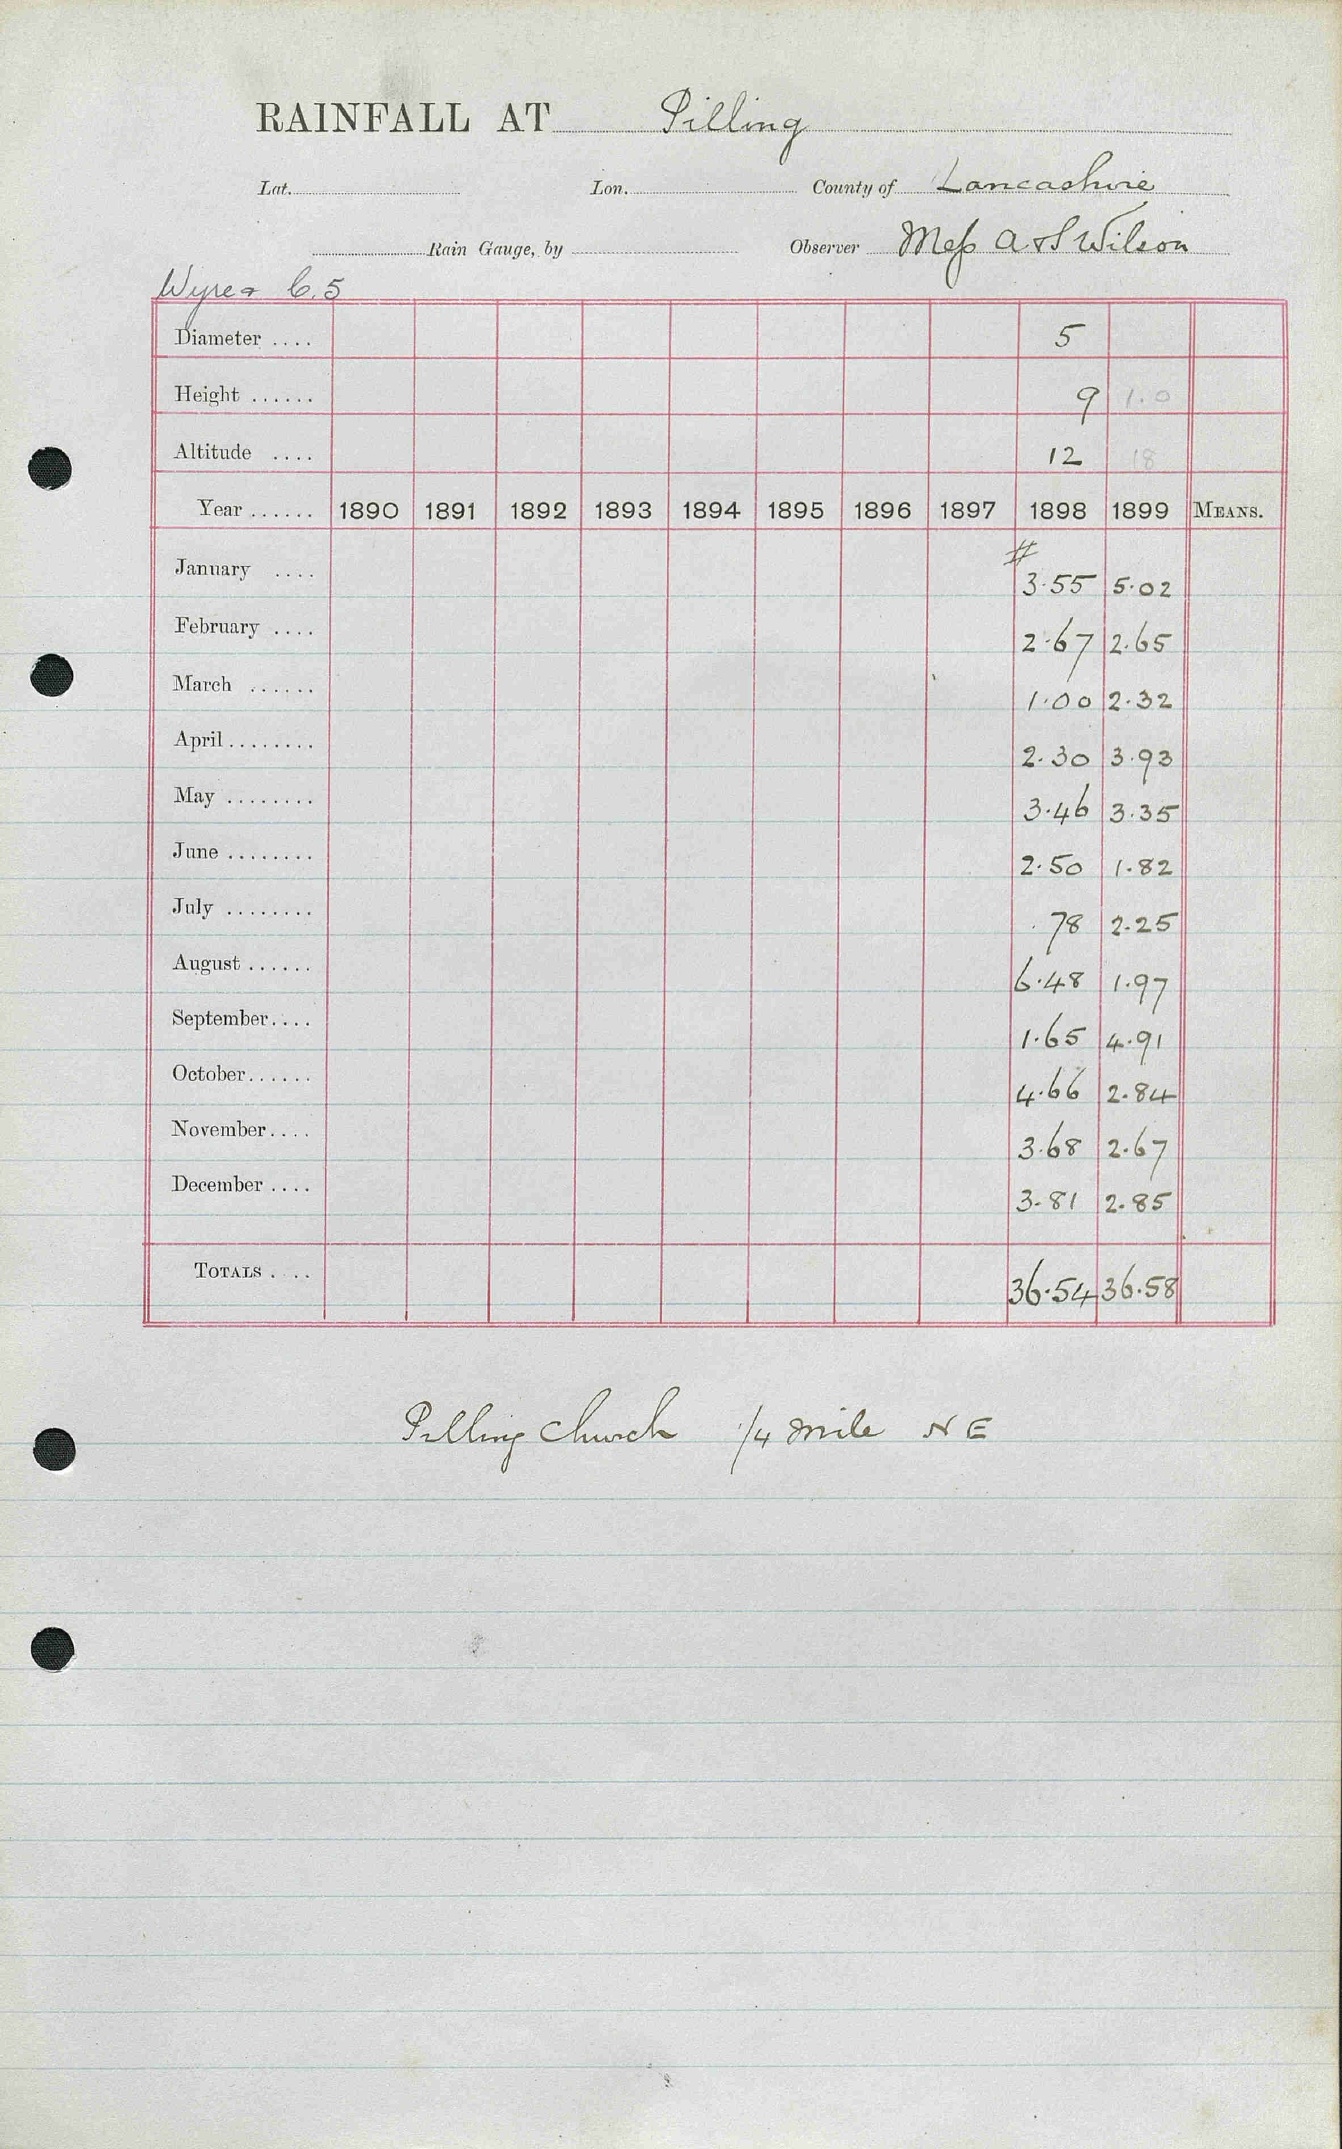 RAINFALL AT Pilling
Lat. Lon. County of Lancashire
Rain Gauge, by Observer Mess A & S Wilson
Wyre & C.5
Diameter .... 5
Height ...... 9 1.0
Altitude .... 12 18
Year ...... 1890 1891 1892 1893 1894 1895 1896 1897 1898 1899 MEANS.
#
January .... 3.55 5.02
February .... 2.67 2.65
March ...... 1.00 2.32
April ........ 2.30 3.93
May ........ 3.46 3.35
June ........ 2.50 1.82
July ........ .78 2.25
August ...... 6.48 1.97
September .... 1.65 4.91
October ...... 4.66 2.84
November .... 3.68 2.67
December .... 3.81 2.85
TOTALS .... 36.54 36.58
Pilling Church 1/4 mile N E